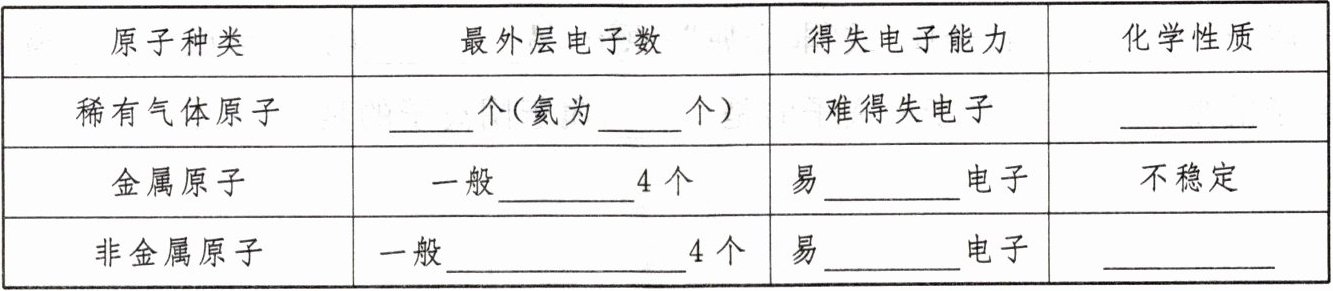 原子种类 最外层电子数 得失电子能力 化学性质
稀有气体原子 ____个(氦为____个) 难得失电子 ______
金属原子 一般______4个 易______电子 不稳定
非金属原子 一般__________4个 易______电子 ________